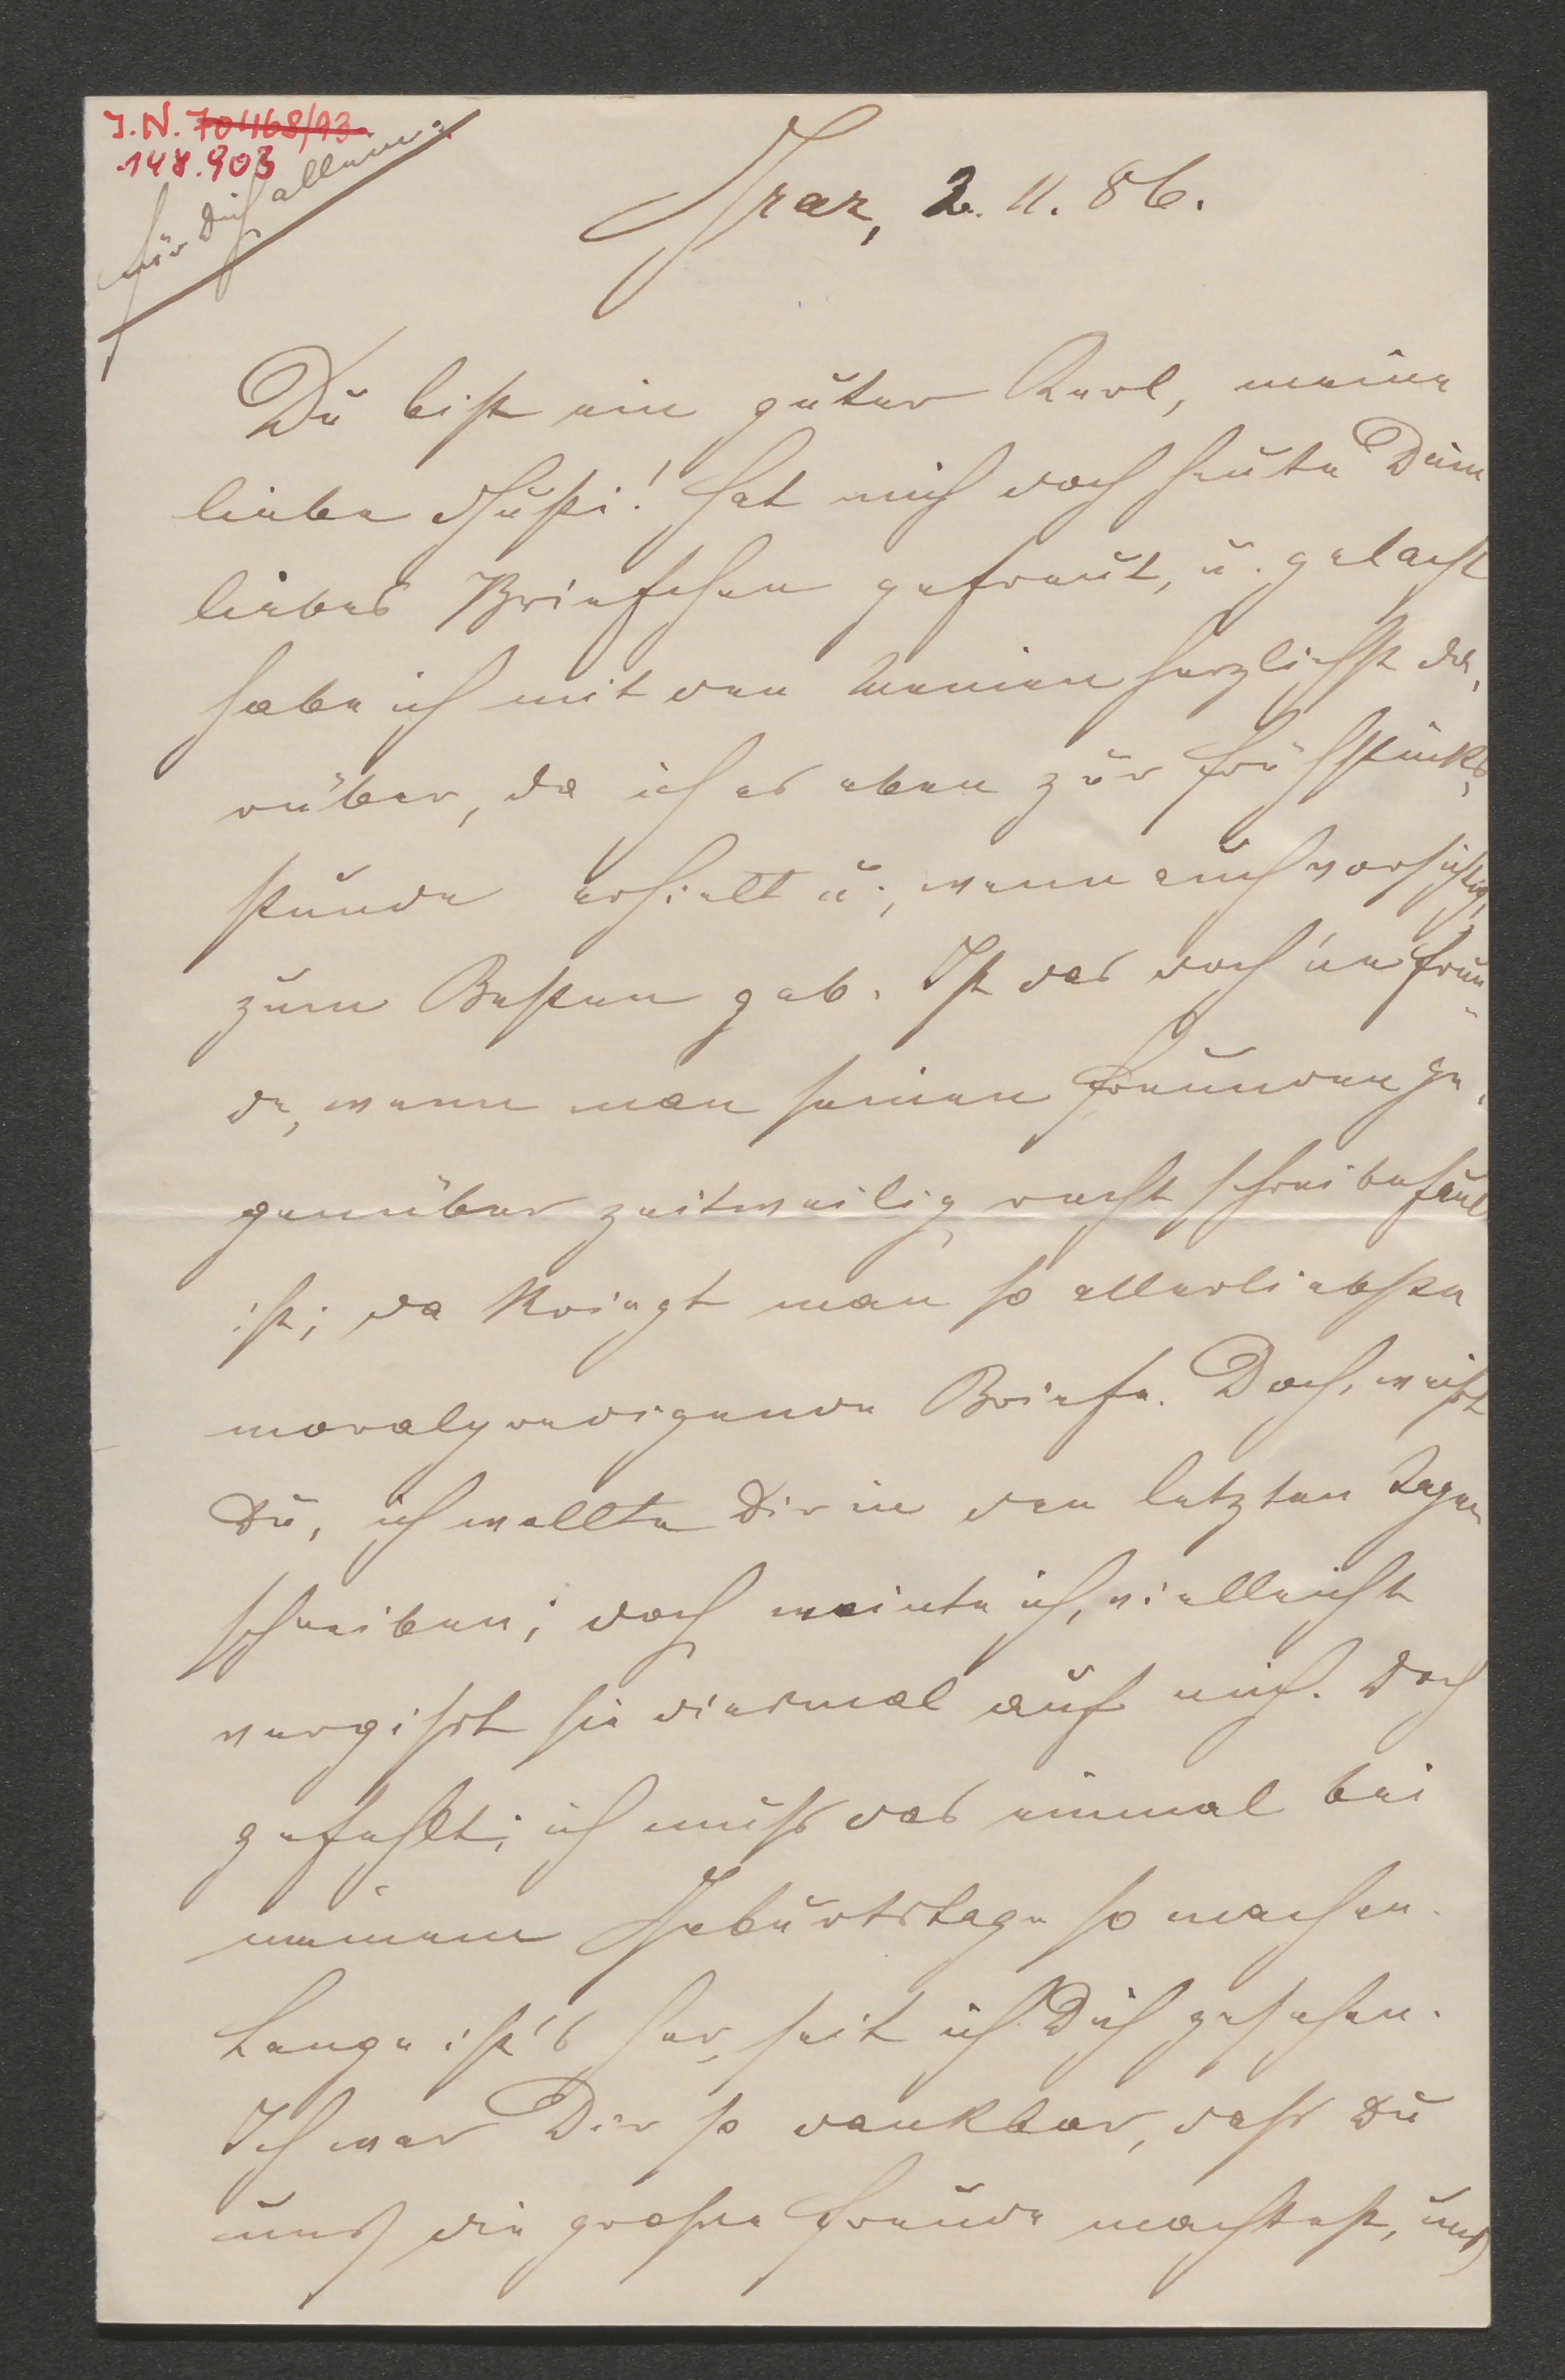 J. N. 70468/93
148.903
für Dich allein:
Graz, 2. 11. 86.
Du bist ein guter Kerl, meine
liebe Gusti! Hat mich doch heute Dein
liebes Briefchen gefreut, u. gelacht
habe ich mit den Meinen herzlichst da-
rüber, da ich es eben zur Frühstücks-
stunde erhielt u., wenn auch vorsichtig,
zum Besten gab. Ist das doch 'ne Freu-
de, wenn man seinen Freunden ge-
genüber zeitweilig recht schreibefaul
ist; da kriegt man so allerliebste
moralpredigende Briefe. Doch, weißt
Du, ich wollte Dir in den letzten Tagen
schreiben; doch meinte ich, vielleicht
vergisst sie diesmal auf mich. Doch
gefehlt; ich muss das einmal bei
meinem Geburtstage so machen.
Lange ist's her, seit ich Dich gesehen.
Ich war Dir so dankbar, dass Du
uns die grosse Freude machtest, uns